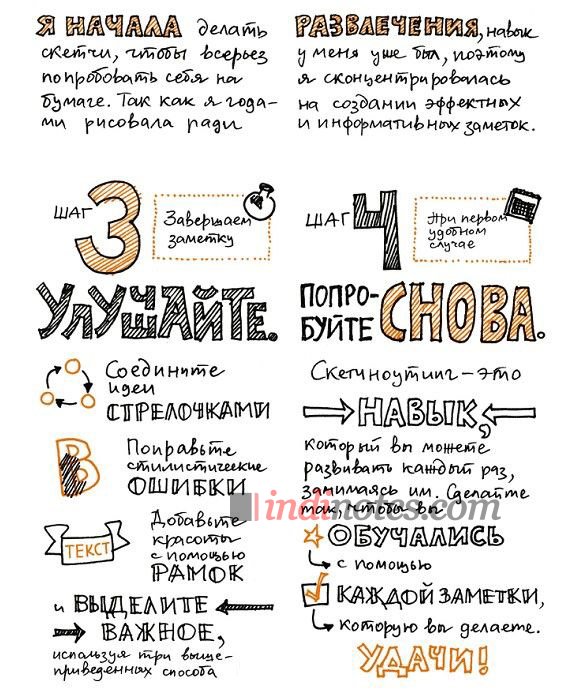 Я НАЧАЛА делать
скетчи, чтобы всерьез
попробовать себя на
бумаге. Так как я года-
ми рисовала ради
РАЗВЛЕЧЕНИЯ, навык
у меня уже был, поэтому
я сконцентрировалась
на создании эффектных
и информативных заметок.
ШАГ 3
Завершаем
заметку
УЛУЧШАЙТЕ.
Соедините
идеи
СТРЕЛОЧКАМИ
В
Поправьте
стилистические
ОШИБКИ
ТЕКСТ
Добавьте
красоты
с помощью
РАМОК
и ВЫДЕЛИТЕ
ВАЖНОЕ,
используя три выше-
приведенных способа
ШАГ 4
При первом
удобном
случае
ПОПРО-
БУЙТЕ СНОВА.
Скетчноутинг – это
НАВЫК,
который вы можете
развивать каждый раз,
занимаясь им. Сделайте
так, чтобы вы
ОБУЧАЛИСЬ
с помощью
КАЖДОЙ ЗАМЕТКИ,
которую вы делаете.
УДАЧИ!
indinotes.com